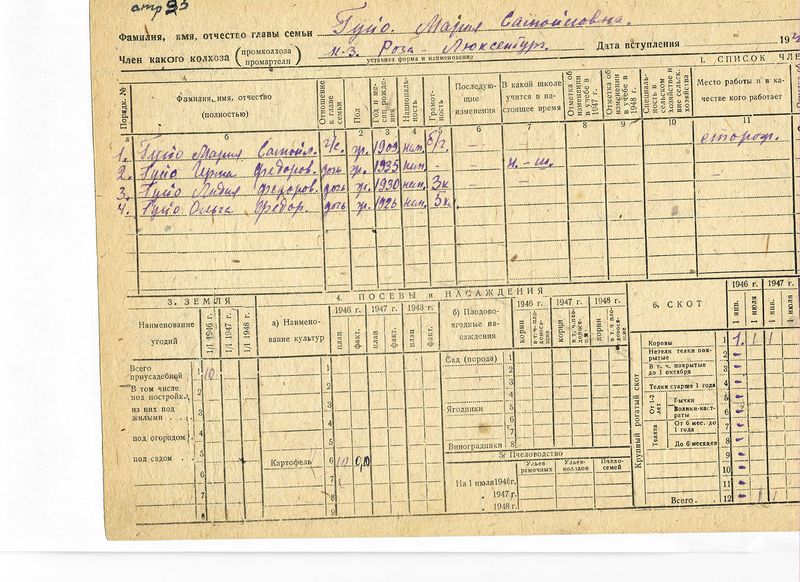 стр 23
Фамилия, имя, отчество главы семьи Гуйо. Мария Самойловна.
Член какого колхоза (промколхоза промартели) к-з. Роза-Люксембург. Дата вступления 194
уставная форма и наименование
1. СПИСОК ЧЛЕ
Порядк. №
Фамилия, имя, отчество (полностью)
Отношение к главе семьи
Пол
Год и месяц рождения
Национальность
Грамотность
Последующие изменения
В какой школе учится в настоящее время
Отметка об изменении в учебе в 1947 г.
Отметка об изменении в учебе в 1948 г.
Специальность в сельском хозяйстве и вне сельск. хозяйства
Место работы и в качестве кого работает
а б 1 2 3 4 5 6 7 8 9 10 11
1. Гуйо Мария Самойл. г/с. ж. 1909 нем. б/г. — — сторож.
2. Гуйо Ирма Федоров. дочь ж. 1935 нем. - н.-ш.
3. Гуйо Лидия Федоров. дочь ж. 1930 нем. 3к.
4. Гуйо Ольга Федор. дочь ж. 1926 нем. 3к.
3. ЗЕМЛЯ
Наименование угодий
1/I 1946 г.
1/I 1947 г.
1/I 1948 г.
Всего приусадебной 1 10
В том числе под постройк. 2
из них под жилыми 3
4
под огородом 5
под садом 6
7
8
4. ПОСЕВЫ и НАСАЖДЕНИЯ
а) Наименование культур
1946 г. 1947 г. 1948 г.
план факт. план факт. план факт.
1
2
3
4
5
Картофель 6
7
8
9
б) Плодово-ягодные насаждения
1946 г. 1947 г. 1948 г.
корни в т. ч. плодоносящие
Сад (порода) 1
2
3
4
Ягодники 5
6
7
Виноградники 8
5/ Пчеловодство
Ульев рамочных
Ульев-колодок
Пчелосемей
На 1 июля 1946 г.
" 1947 г.
" 1948 г.
6. СКОТ
1946 г. 1947 г.
1 янв. 1 июля 1 янв. 1 июля
Крупный рогатый скот
Коровы 1 1. 1 1
Нетели телки покрытые 2
В т. ч. покрытые до 1 октября 3
Телки старше 1 года 4
От 1-2 лет
Бычки 5
Волики-кастраты 6
Телята
От 6 мес. до 1 года 7
До 6 месяцев 8
9
10
11
Всего. 12